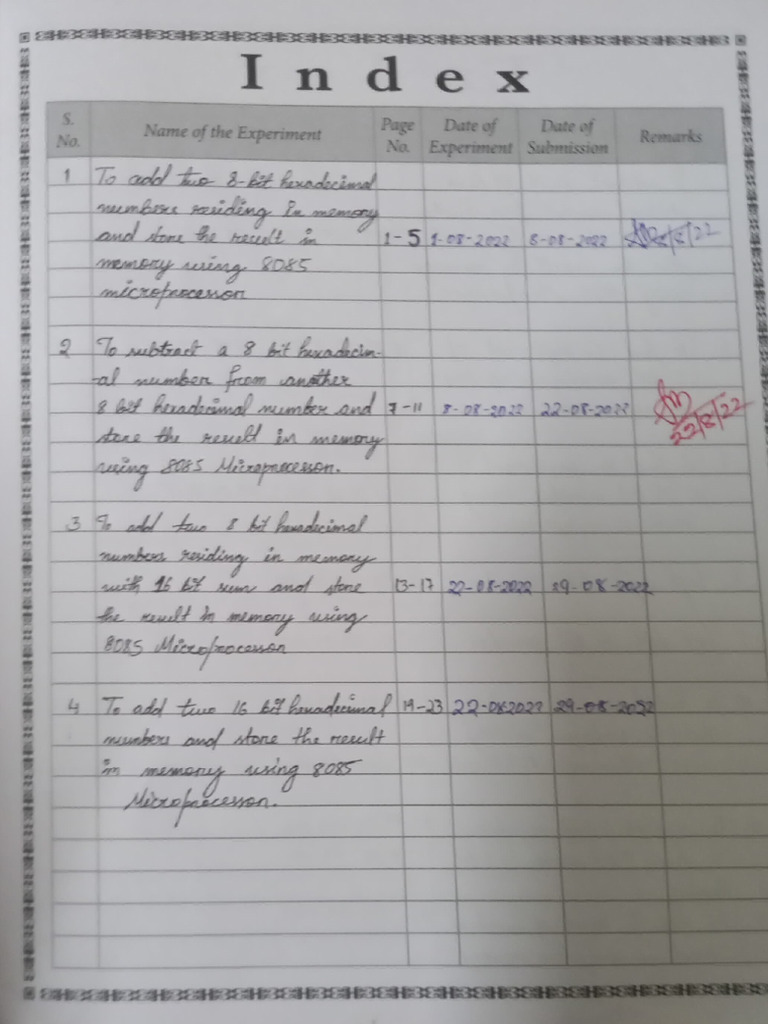 Index
S. No. Name of the Experiment Page No. Date of Experiment Date of Submission Remarks
1 To add two 8-bit hexadecimal
numbers residing in memory
and store the result in 1-5 1-08-2022 8-08-2022 8/8/22
memory using 8085
microprocessor
2 To subtract a 8 bit hexadecim-
-al number from another
8 bit hexadecimal number and 7-11 8-08-2022 22-08-2022
store the result in memory 22/8/22
using 8085 Microprocessor.
3 To add two 8 bit hexadecimal
numbers residing in memory
with 16 bit sum and store 13-17 22-08-2022 29-08-2022
the result in memory using
8085 Microprocessor
4 To add two 16 bit hexadecimal 19-23 22-08-2022 29-08-2022
numbers and store the result
in memory using 8085
Microprocessor.